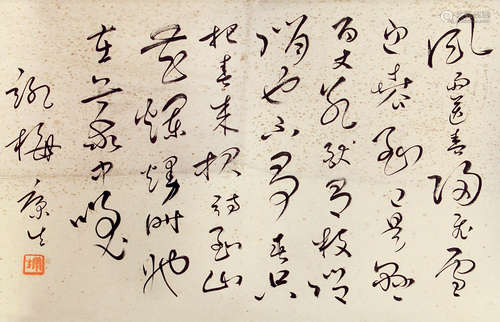 风雨送春归飞雪
迎春到已是悬
百丈冰犹有枝俏
俏也不争春只
把春来报待到山
花烂熳时她
在丛中笑
詠梅 康生